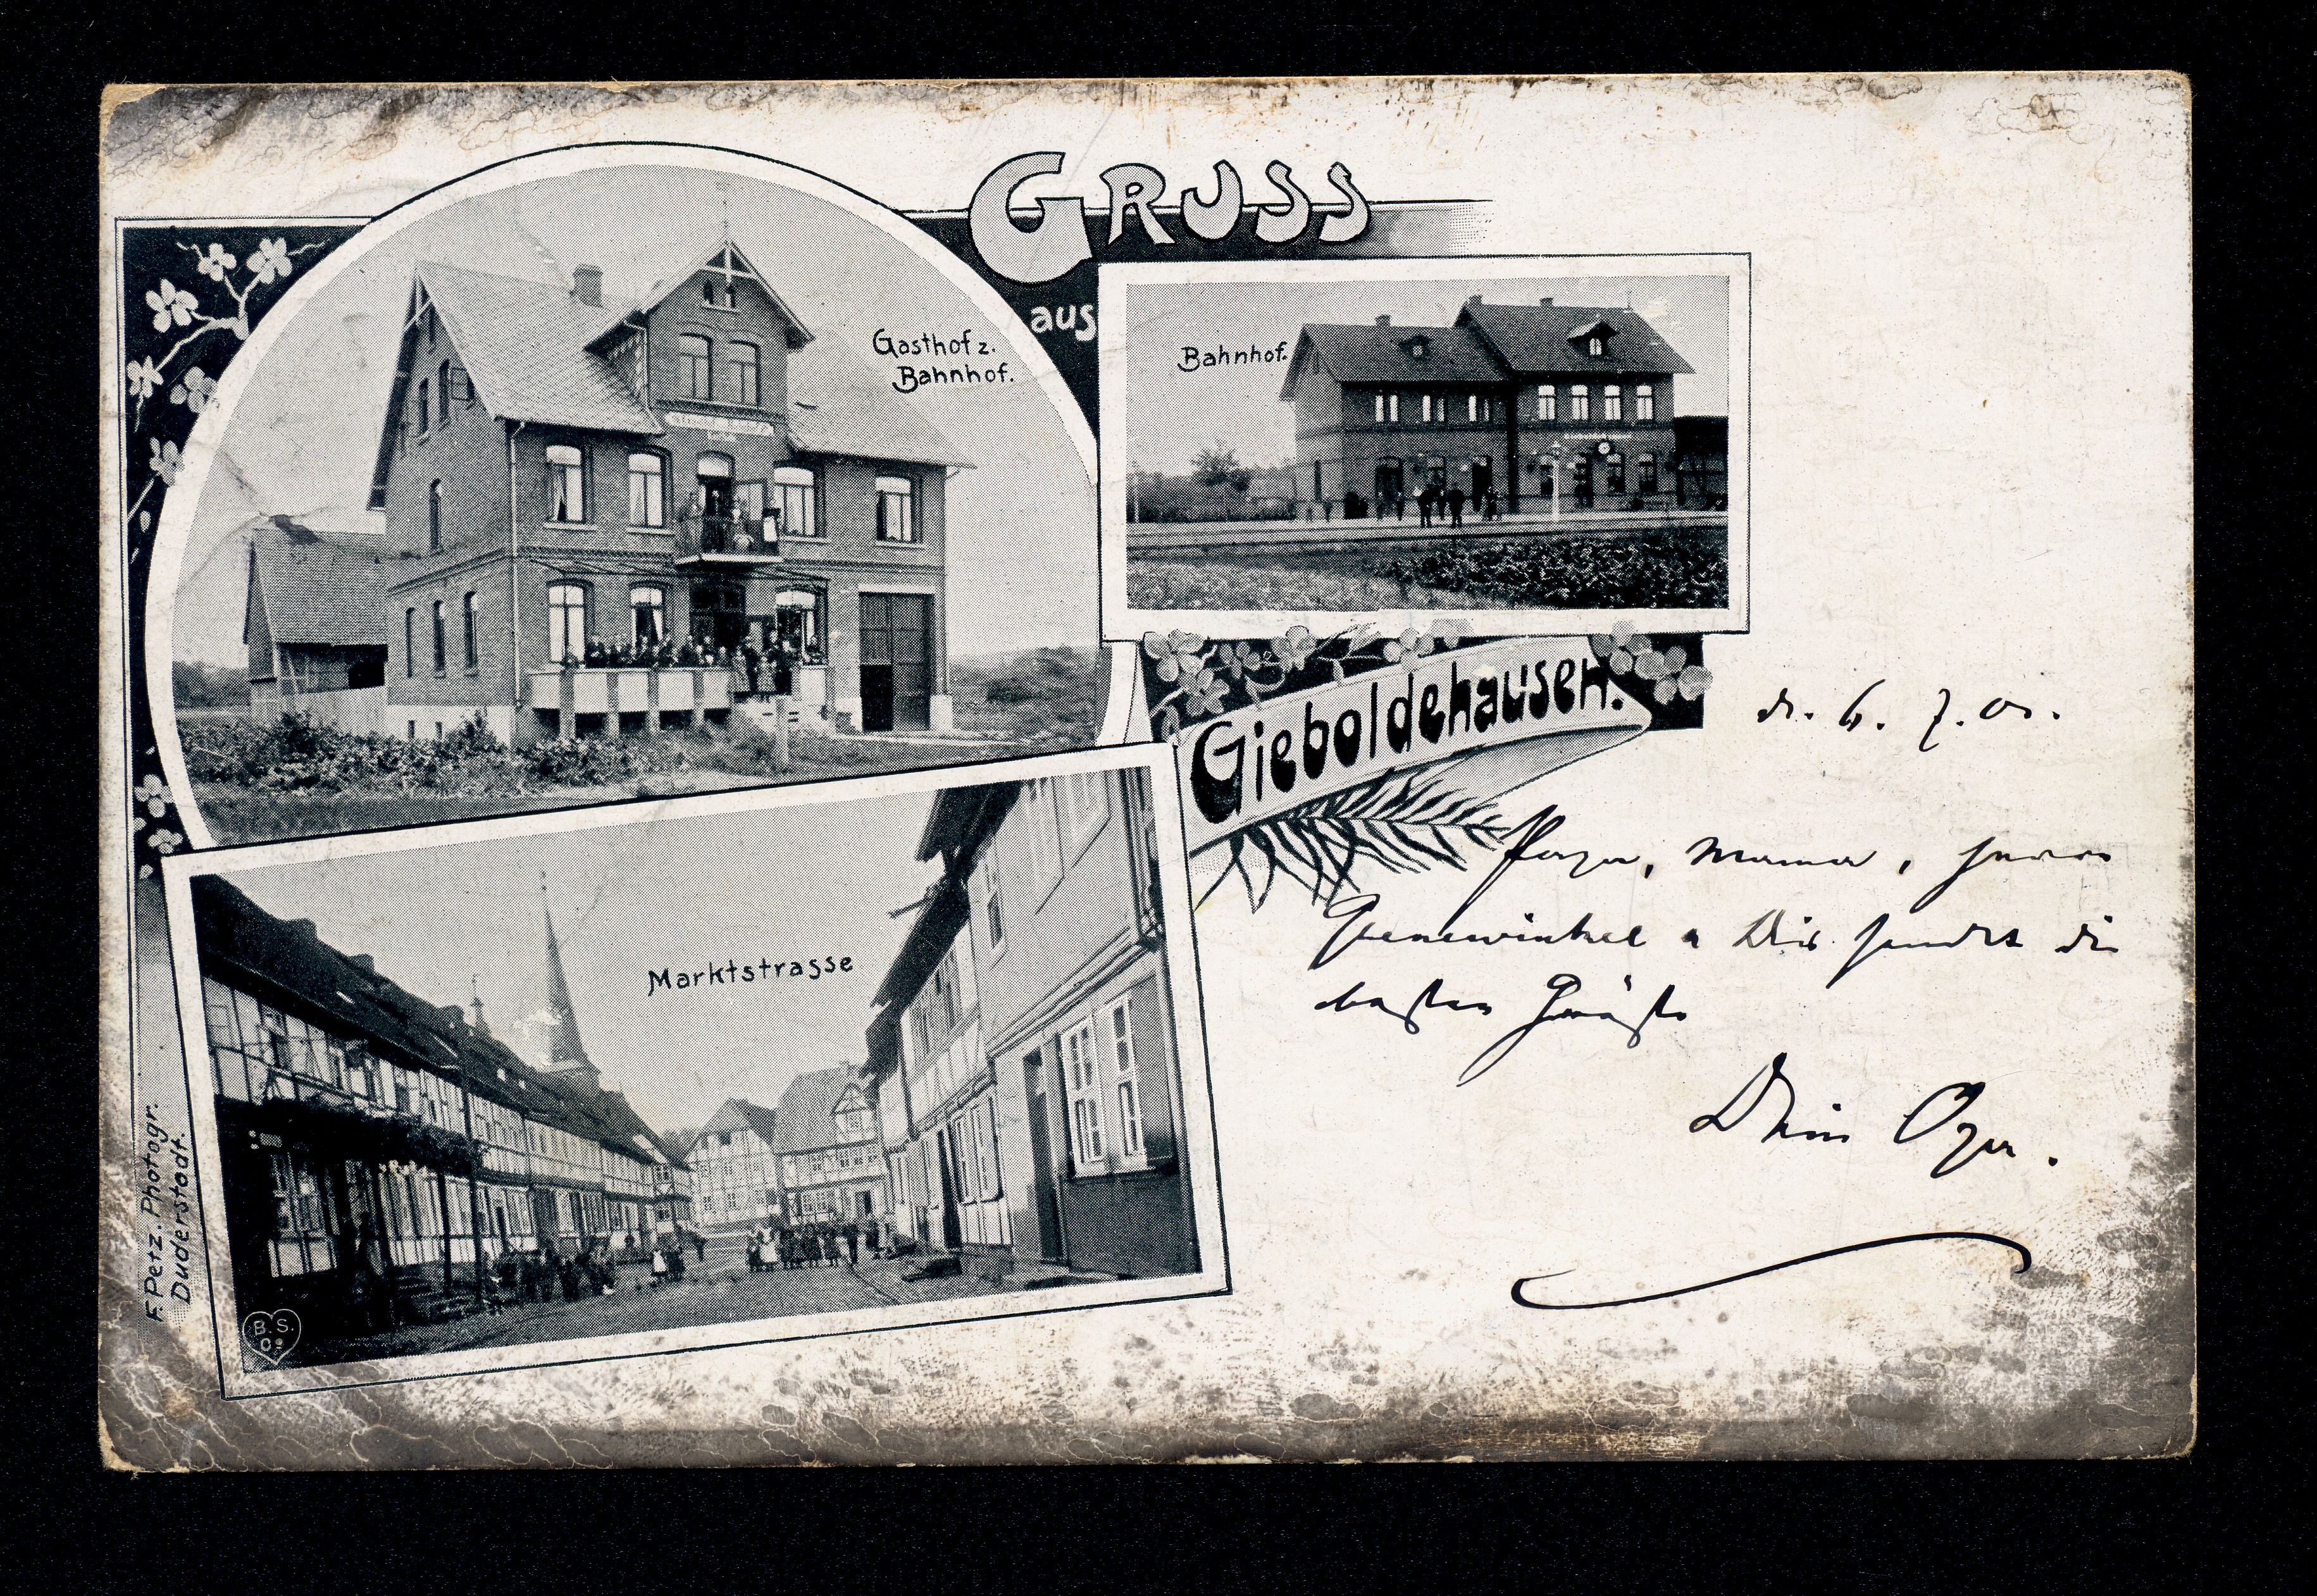 GRUSS
aus
Gasthof z.
Bahnhof.
Bahnhof.
Gieboldehausen.
Marktstrasse
F. Petz. Photogr.
Duderstadt.
B. S.
d. 6. 7. 01.
Papa, Mama,
Grenewinkel u Dir sendet die
besten Grüße
Dein